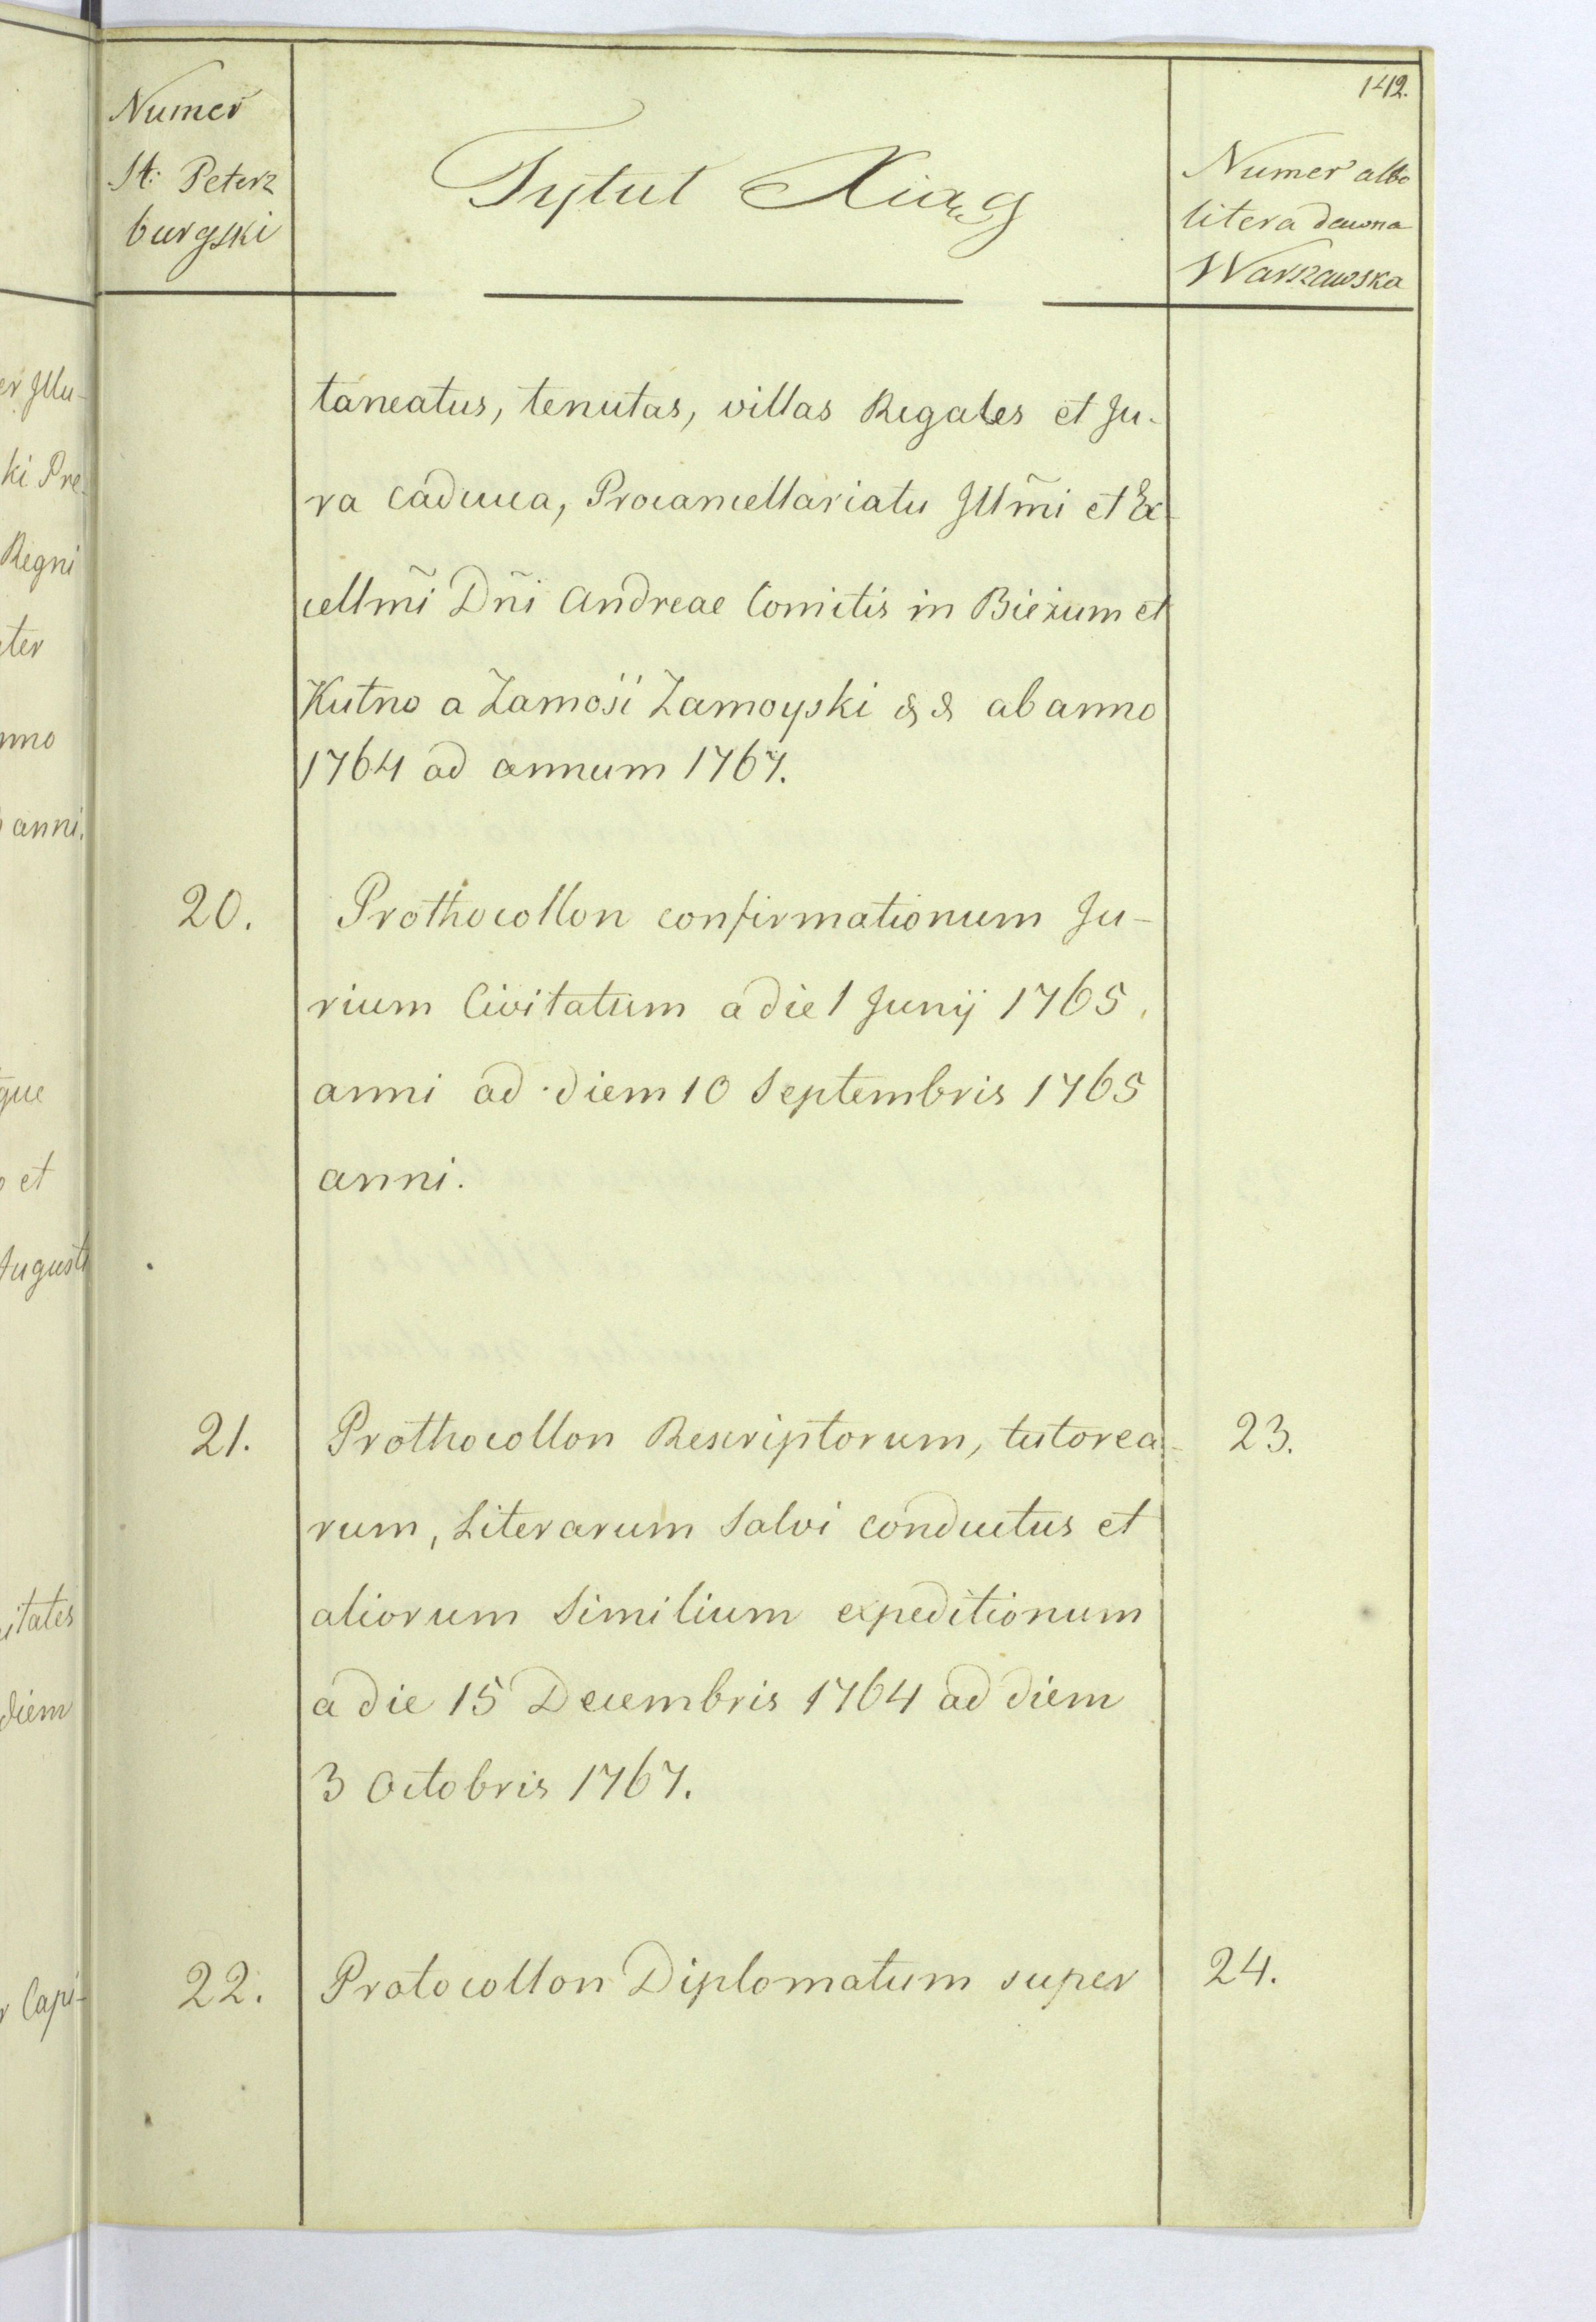 142.
Numer
St: Peterz
burgski
Tytuł Xiąg
Numer albo
litera dawna
Warszawska
taneatus, tenutas, villas Regales et Ju-
ra caduca, Procancellariatu Jllm̃i et Ex-
cellm̃i Dñi Andreae Comitis in Bieżum et
Kutno a Zamość Zamoyski &&  ab anno
1764 ad annum 1767.
20. Prothocollon confirmationum Ju-
rium Civitatum a die 1 Junij 1765.
anni ad diem 10 Septembris 1765
anni.
21. Prothocollon Rescriptorum, tutorea- 23.
rum, Literarum Salvi conductus et
aliorum Similium expeditionum
a die 15 Decembris 1764 ad diem
3 Octobris 1767.
22. Protocollon Diplomatum super 24.
er Jllu-
ki Pre-
Regni
ter
nno
anni.
que
et
Augusti
itates
diem
r Capi-